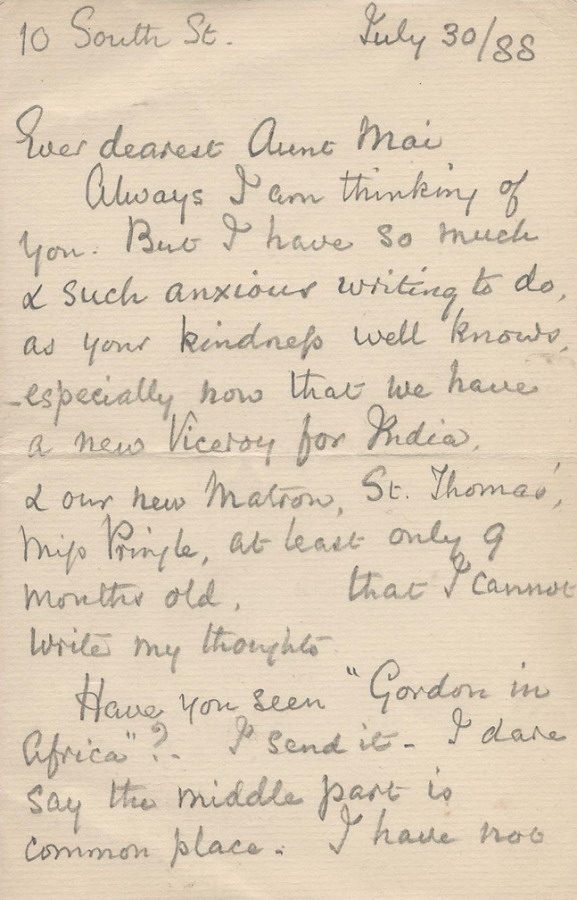 10 South St. July 30/88
Ever dearest Aunt Mai
Always I am thinking of
you. But I have so much
& such anxious writing to do,
as your kindness well knows,
-especially now that we have
a new Viceroy for India,
& our new Matron, St. Thomas',
Miss Pringle, at least only 9
months old, that I cannot
write my thoughts
Have you seen "Gordon in
Africa"?- I send it- I dare
say the middle part is
common place. I have not